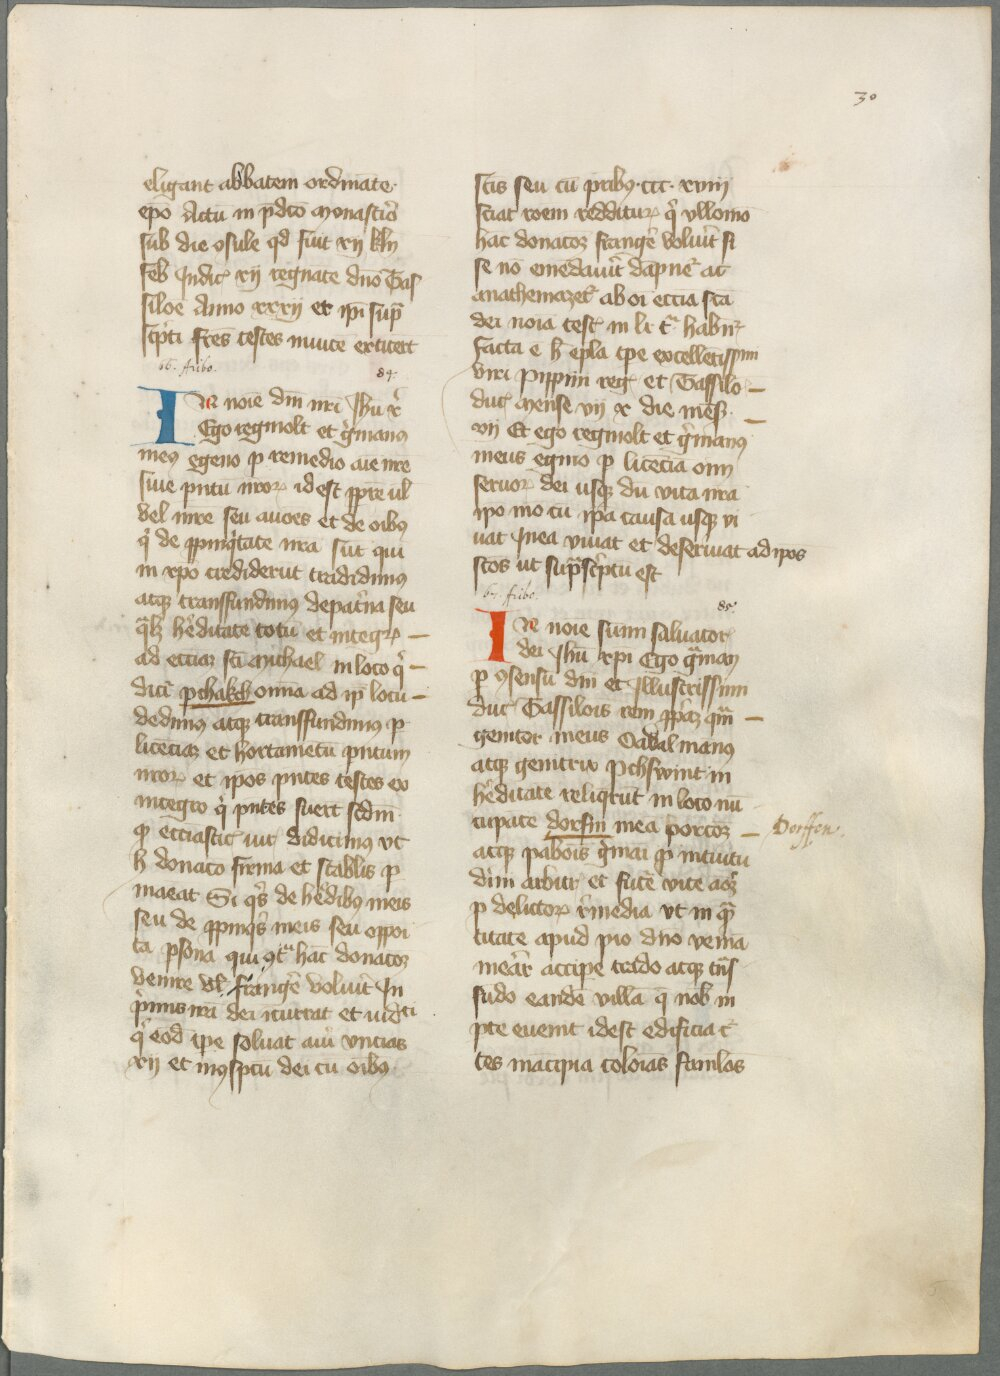 30
eligant abbatem ordinate
epō Actū in p̄dcō monastiō
sub die ↄsule qd fuit xij kln̄
feb Indic̄ xij regnāte dnō Tas
siloe Anno xxxij et ip̄i sup̄
sc̄pti frēs testes inuicē extitert
66. Aribo.
84.
In noīe dnī nrī Jhū xp̄
Ego reginolt et gͥmanꝰ
meꝰ egeno ꝑ remedio aīe nr̄e
siue pn̄tū nr̄oꝝ id est ꝓpr̄e vl
vel nīre seu auoēs et de oībꝫ
qͥ de ꝓpinqͥtate nr̄a sūt qui
in xp̄o crediderūt tradidimꝰ
atqꝫ transfundimꝰ de pat̄na seu
q̄lꝫ h̄editate totū et integꝝ –
ad ecciaꝫ scī Michael in loco qͥ –
dicit̄ pchakch oīnia ad ip̄ locū –
dedimꝰ atqꝫ transfundimꝰ ꝑ
licēciaꝫ et hortamētū pn̄tum
nr̄oꝝ et ip̄os pn̄tes testes ex
integro qͥ pn̄tes fuert̄ scdm̄
qͥ ecciastic̄ iur̄ didicimꝰ vt
h̄ donaco firma et stabl̄is ꝑ
maneat Si qͥs de h̄edibꝫ meis
seu de ꝓpinqͥs meis seu oppoi
ta ꝑsona qui ↄtͣ hāc donacōꝫ
venire vl̄ frangē voluit̄ In
pͥmis irā dei icurrat et iudͨti
qͥ eod tp̄e soluat auͥ vncias
xij et in ↄspcū dei cū oībꝫ
sc̄is seu cū pr̄ibꝫ ccc xviij
sciat roēm redditurꝝ qͥ vllomō
hāc donacoꝫ frangē voluīt si
se nō emēdauit̄ dāpnet̄ ac
anathemazet̄ ab oī eccia sc̄a
dei noīa test̄ in lr̄ cͣ habn̄t
Facta ē h̄ epl̄a tp̄e excellētissimi
viri Pippini reḡ et Tassilo –
duc̄ mense vij x die mēs –
vij Et ego reginolt et gͥmanꝰ
meus egino ꝑ licēcia oīni
seruoꝝ dei usqꝫ dū vita nr̄a
ip̄o mō cū ip̄a causa usqꝫ vi
uat In ea viuat et deseruat ad ipos
sc̄os ut sup̄sc̄ptū est
67. Aribo.
85.
In noīe summi saluatoꝝ
dei Jhū xp̄i Ego gͣman
ꝑ ↄsensū dnī et Illustrissimi
duc̄ Tassilois rem ꝓpͥaꝫ qm̄ –
genitor meus Oadalmanꝰ
atqꝫ genitrix Pchswint in
h̄editate reliqͥrūt in loco nū
cupate dorfin mea porcoꝫ – Dorffen.
atqꝫ pabois gͥmai qͥ intuitu
dīni arbitr̄ et futē vite aoꝫ
ꝑ delictoꝝ rͥmedia vt in qͣ
titate apud pio dn̄o veniā
meār̄ accipe trado atqꝫ tn̄s
fudo eandē villā q̄ nob̄ in
pte euenit idest edificia c̄
tes mācipia coloīas famlos